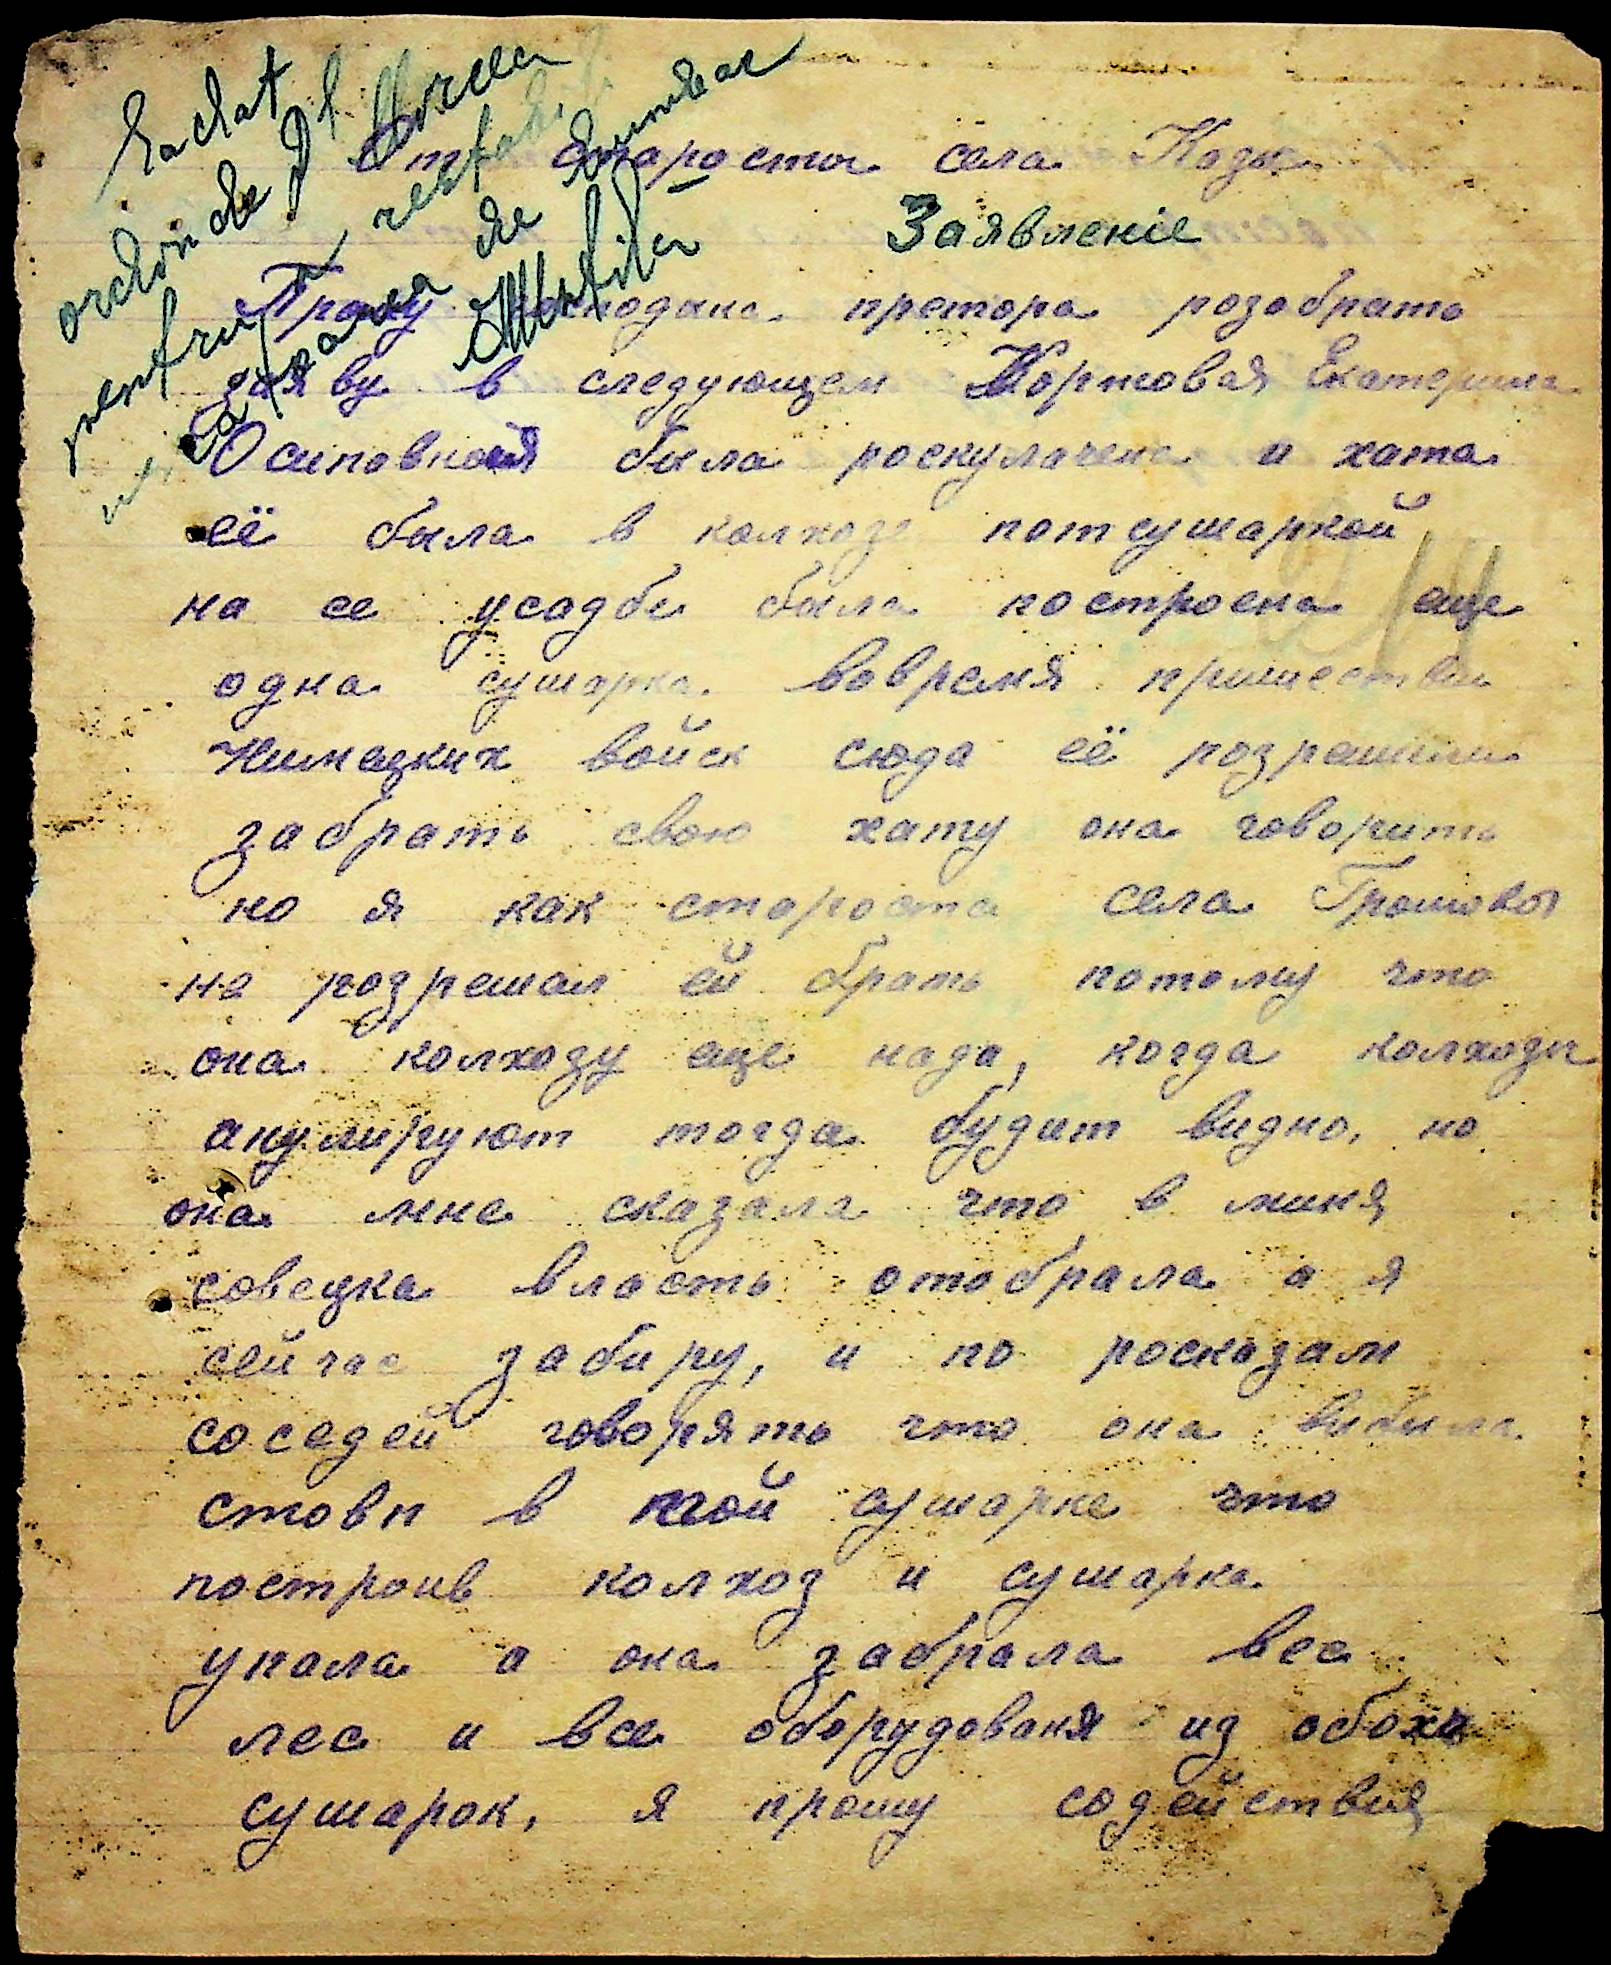 От старосты села Козы
Заявленіе
Прошу господина претора розобрать
заяву в следующем Кортовая Екатерина
Осиповная была роскулачена а хата
её была в колхозе потсушаркой
на ее усадбе была построена еще
одна сушарка вовремя пришествии
Нимецких войск сюда её розрешили
забрать свою хату она говорить
но я как староста села
не розрешал ей брать потому что
она колхозу еще нада, когда колхозы
анулируют тогда будит видно, но
она мне сказала что в миня
совецка власть отобрала а я
сейчас забиру, и по росказам
соседей говорять что она вибила
стовп в той сушарке что
построив колхоз и сушарка
упала а она забрала весь
лес и все оборудованя из обохи
сушарок, я прошу содействия